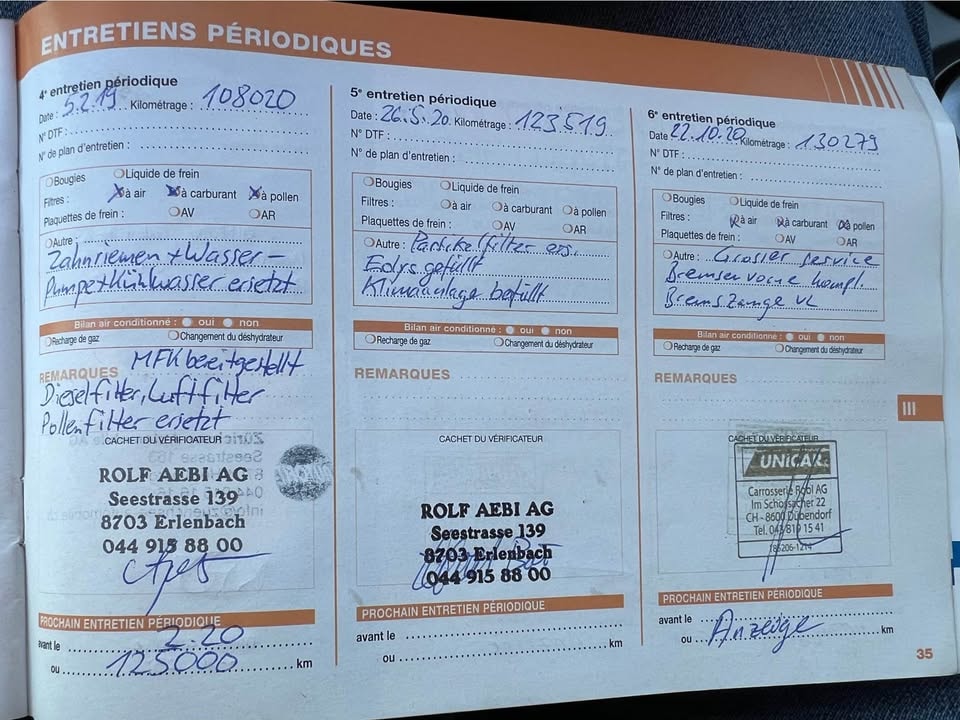 ENTRETIENS PÉRIODIQUES
4e entretien périodique
Date : 5.2.19 Kilométrage : 108020
N° DTF :
N° de plan d'entretien :
Bougies Liquide de frein
Filtres : à air à carburant à pollen
Plaquettes de frein : AV AR
Autre :
Zahnriemen + Wasser-
pumpe + Kühlwasser ersetzt
Bilan air conditionné : oui non
Recharge de gaz Changement du déshydrateur
REMARQUES MFK bereitgestellt
Dieselfilter, Luftfilter
Pollenfilter ersetzt
CACHET DU VÉRIFICATEUR
ROLF AEBI AG
Seestrasse 139
8703 Erlenbach
044 915 88 00
PROCHAIN ENTRETIEN PÉRIODIQUE
avant le 2.20
ou 125000 km
5e entretien périodique
Date : 26.5.20. Kilométrage : 123519
N° DTF :
N° de plan d'entretien :
Bougies Liquide de frein
Filtres : à air à carburant à pollen
Plaquettes de frein : AV AR
Autre : Partikelfilter ers.
Eolys gefüllt
Klimaanlage befüllt
Bilan air conditionné : oui non
Recharge de gaz Changement du déshydrateur
REMARQUES
CACHET DU VÉRIFICATEUR
ROLF AEBI AG
Seestrasse 139
8703 Erlenbach
044 915 88 00
PROCHAIN ENTRETIEN PÉRIODIQUE
avant le
ou km
6e entretien périodique
Date 22.10.20 Kilométrage : 130279
N° DTF :
N° de plan d'entretien :
Bougies Liquide de frein
Filtres : à air à carburant à pollen
Plaquettes de frein : AV AR
Autre : Grosser Service
Bremsen vorne kompl.
Bremszange VL
Bilan air conditionné : oui non
Recharge de gaz Changement du déshydrateur
REMARQUES
III
CACHET DU VÉRIFICATEUR
UNICAR
Carrosserie AG
Im Schossacher 22
CH - 8600 Dübendorf
Tel. 043 819 15 41
PROCHAIN ENTRETIEN PÉRIODIQUE
avant le
ou Anzeige km
35